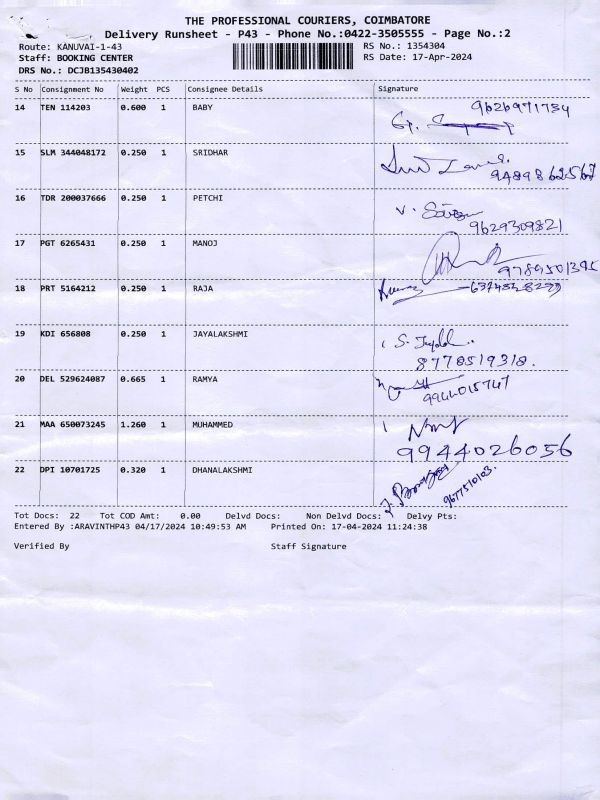 THE PROFESSIONAL COURIERS, COIMBATORE
Delivery Runsheet - P43 - Phone No.:0422-3505555 - Page No.:2
Route: KANUVAI-1-43 RS No.: 1354304
Staff: BOOKING CENTER RS Date: 17-Apr-2024
DRS No.: DCJB135430402
S No Consignment No Weight PCS Consignee Details Signature
14 TEN 114203 0.600 1 BABY
9626971734
15 SLM 344048172 0.250 1 SRIDHAR
16 TDR 200037666 0.250 1 PETCHI
9629309821
17 PGT 6265431 0.250 1 MANOJ
9789501395
18 PRT 5164212 0.250 1 RAJA
19 KDI 656808 0.250 1 JAYALAKSHMI
8778519318.
20 DEL 529624087 0.665 1 RAMYA
9944015747
21 MAA 650073245 1.260 1 MUHAMMED
9944026056
22 DPI 10701725 0.320 1 DHANALAKSHMI
9677510103.
Tot Docs: 22 Tot COD Amt: 0.00 Delvd Docs: Non Delvd Docs: Delvy Pts:
Entered By :ARAVINTHP43 04/17/2024 10:49:53 AM Printed On: 17-04-2024 11:24:38
Verified By Staff Signature